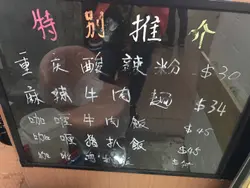 特别推介
重庆酸辣粉 $30
麻辣牛肉麺 $34
咖喱牛肉飯 $45
咖喱豬扒飯 $45
咖喱